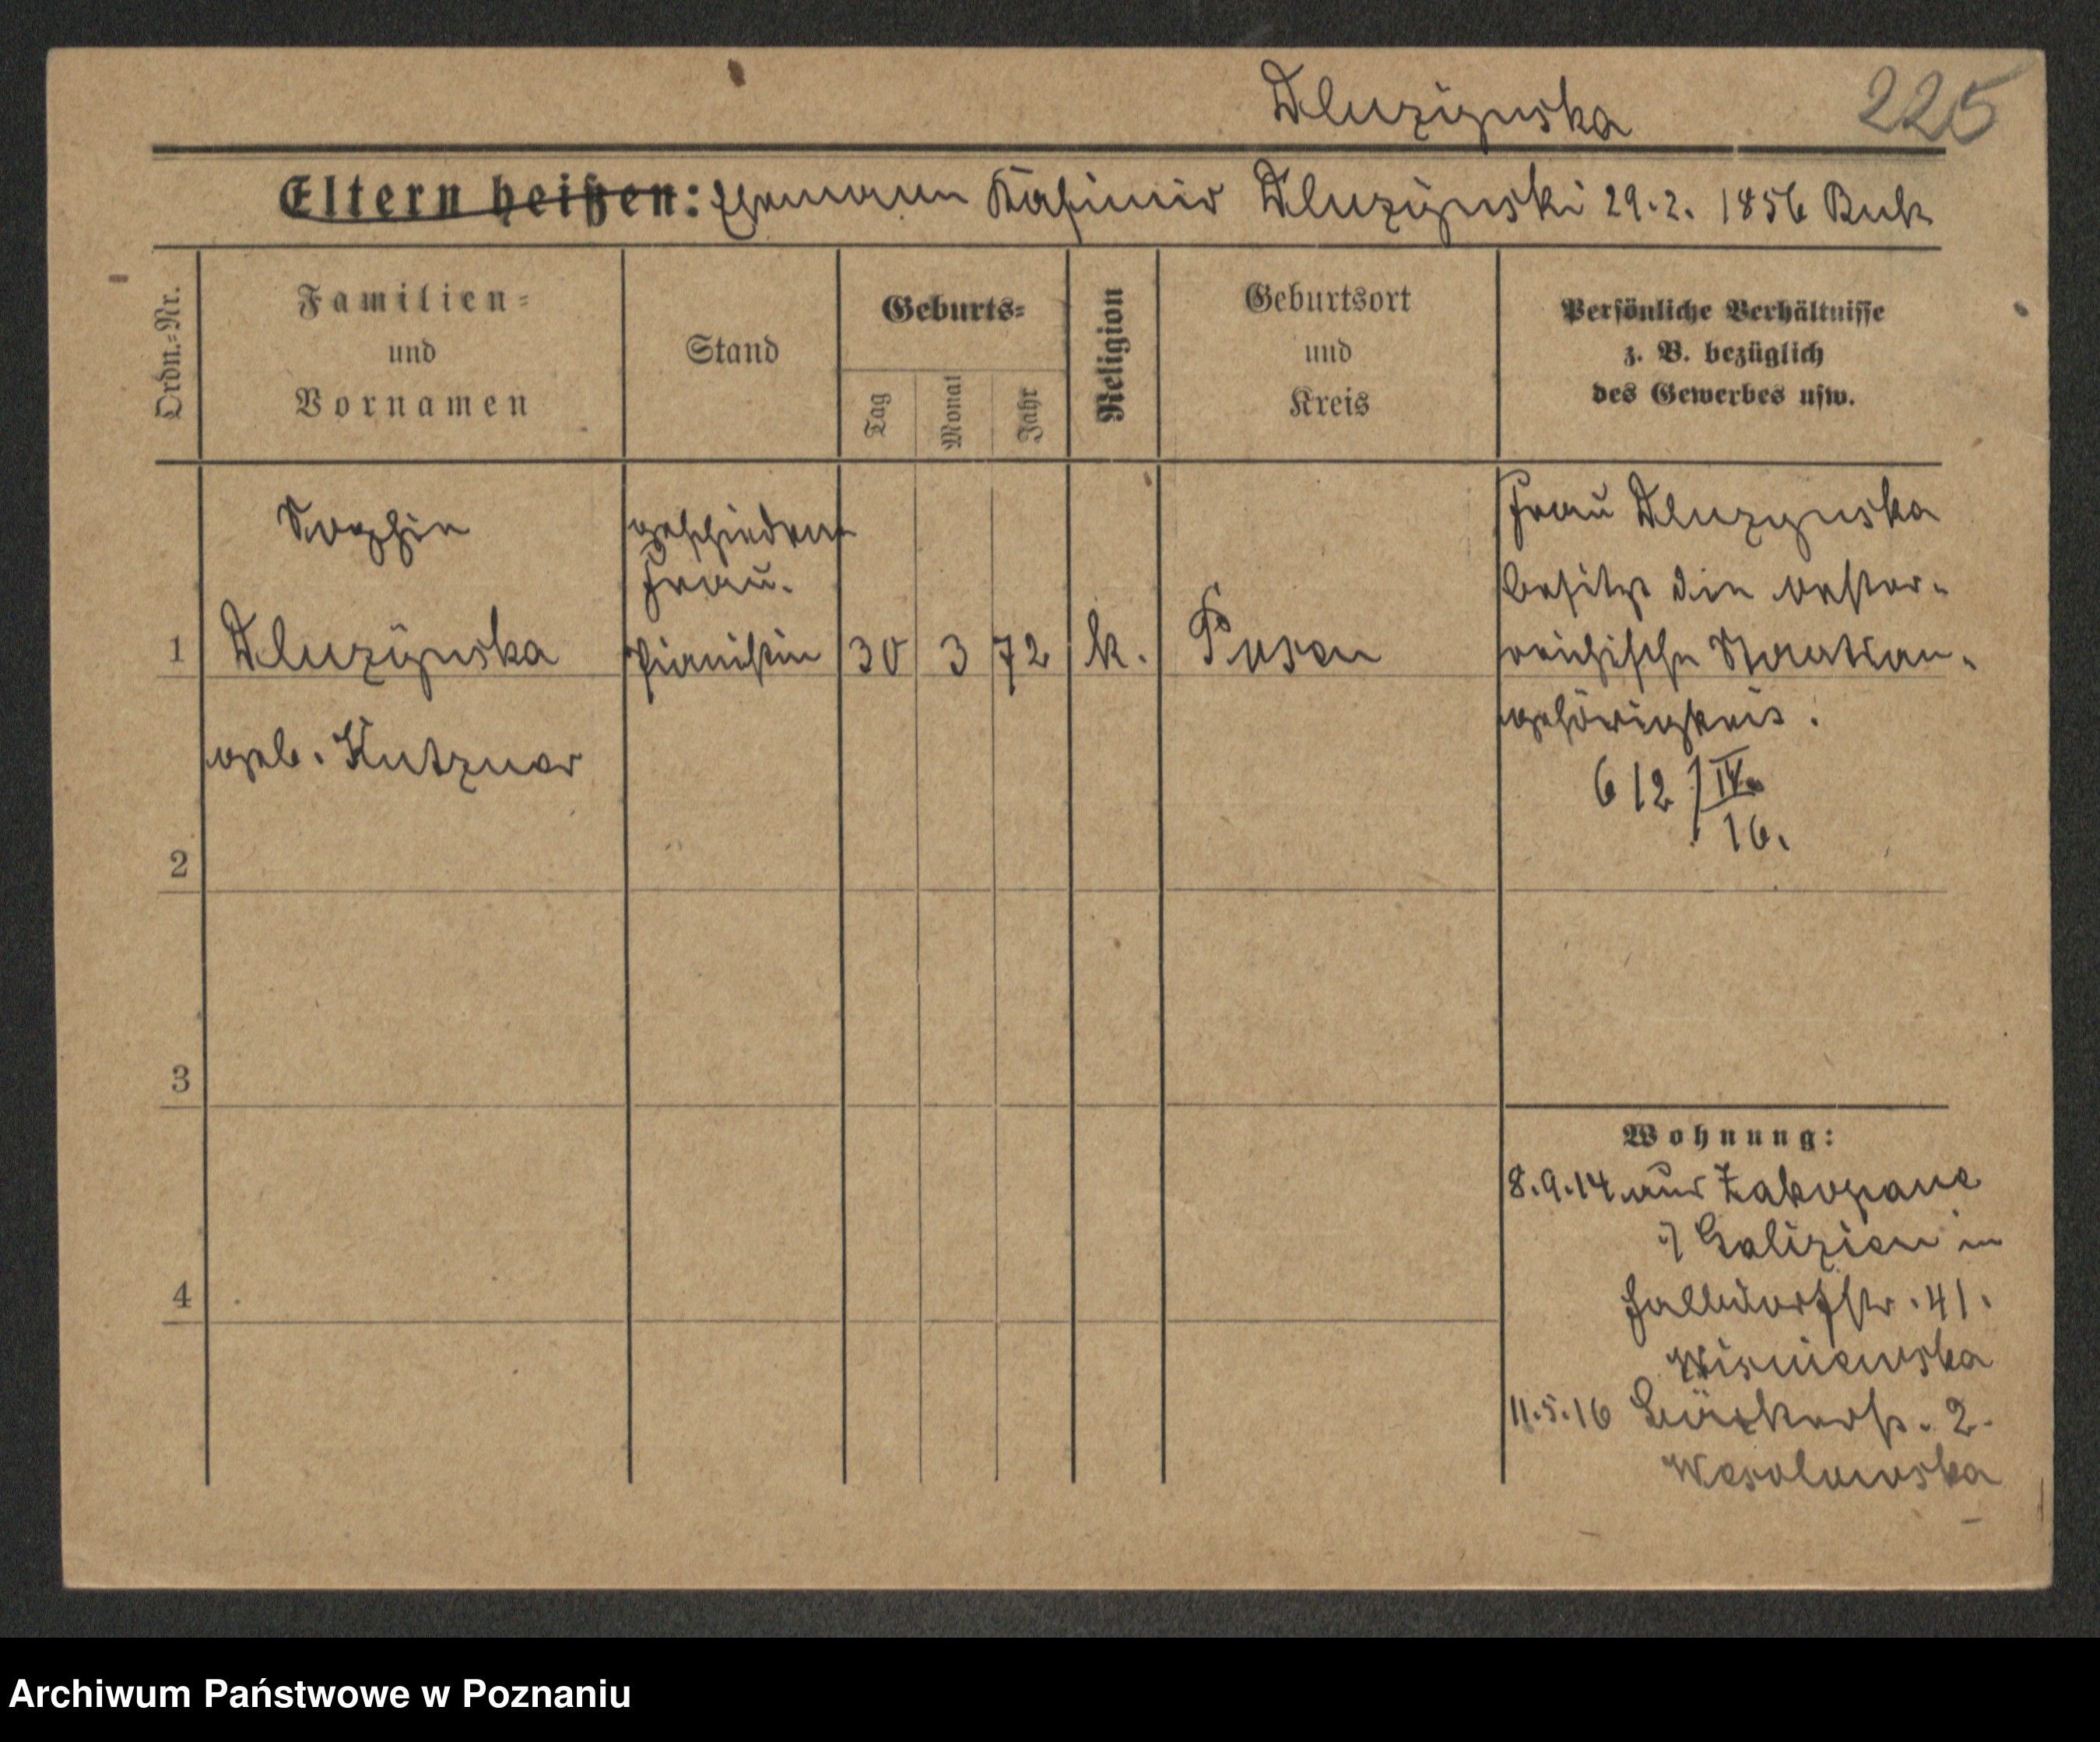 Dluzynska 225
Eltern heißen: Ehemann Kasimir Dluzynski 29.2. 1856 Buk
Ordn.=Nr.
Familien=
und
Vornamen
Stand
Geburts=
Tag
Monat
Jahr
Religion
Geburtsort
und
Kreis
Persönliche Verhältnisse
z. B. bezüglich
des Gewerbes usw.
Sophie
geschiedene
Frau.
1 Dluzynska Pianistin 30 3 72 k. Posen
geb. Kutzner
Frau Dluzynska
besitzt die oester-
reichische Staatsan-
gehörigkeit.
612/IV.
16.
2
3
4
Wohnung:
8.9.14 aus Zakopane
i/ Galizien in
Halbdorfstr. 41.
Wisniewska
11.5.16 2.
Wesolowska
Archiwum Państwowe w Poznaniu